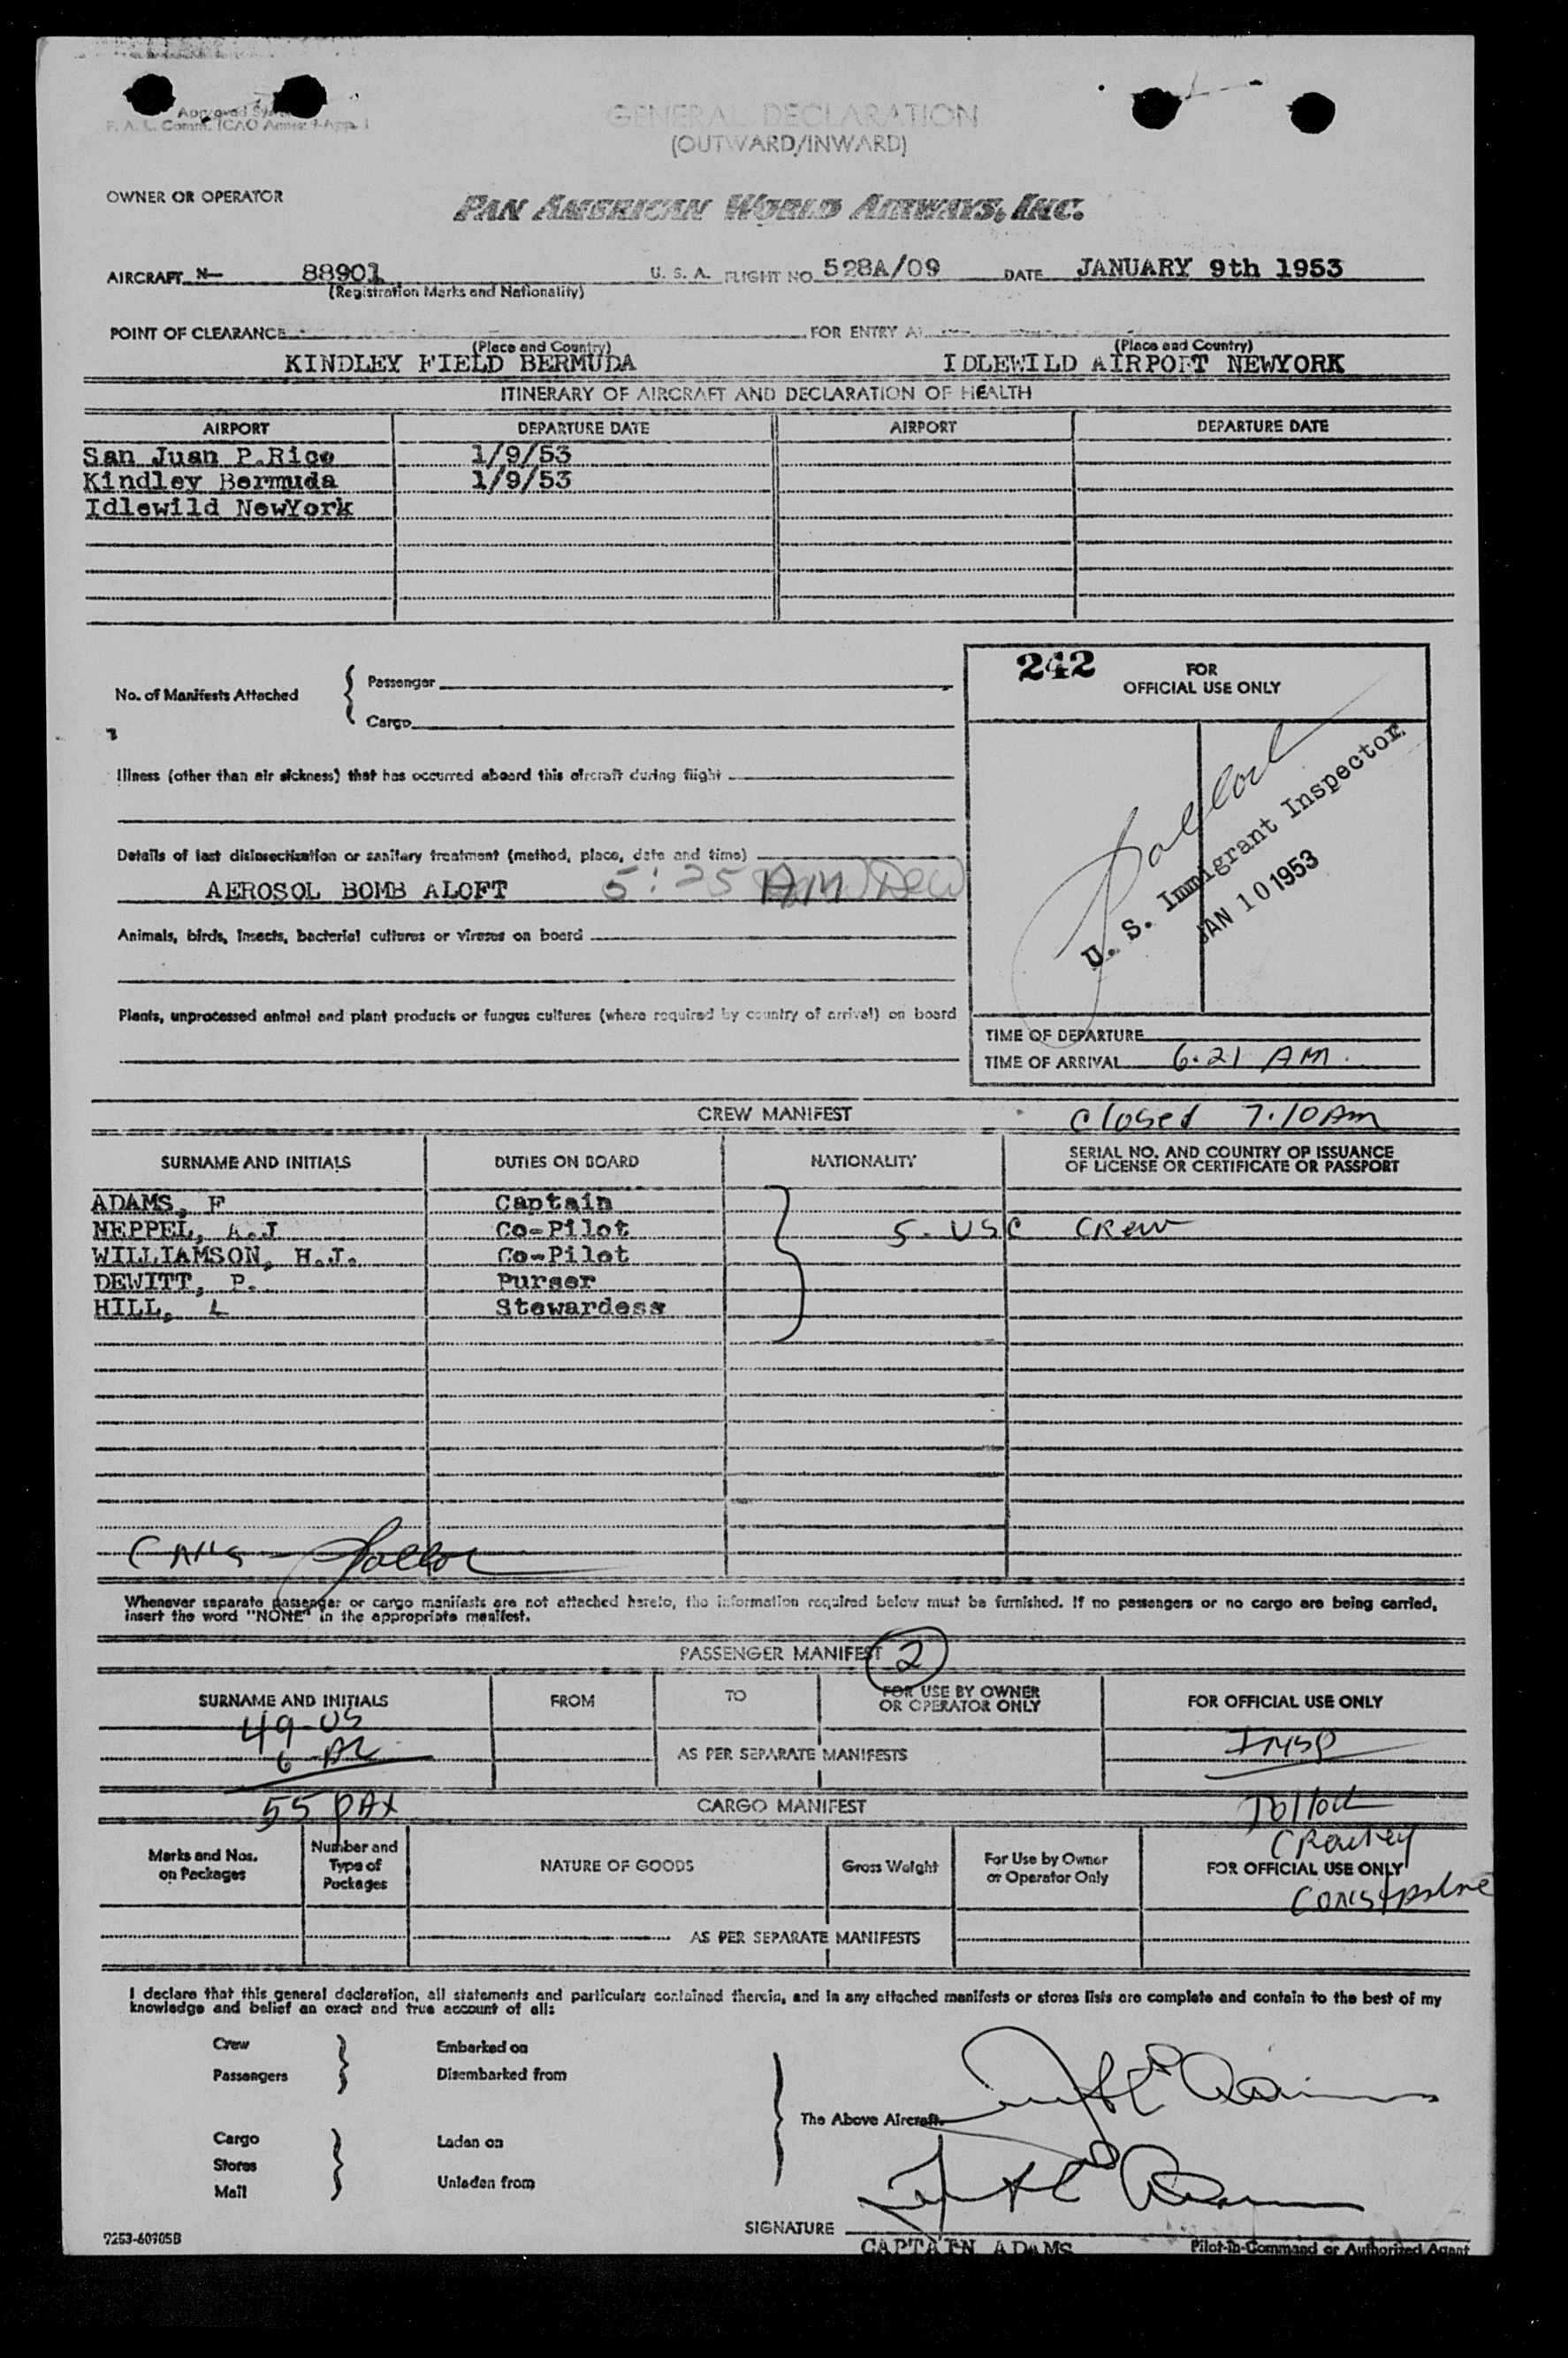 Approved
F. A. L. Comm. ICAO Annex 9-App. 1
GENERAL DECLARATION
(OUTWARD/INWARD)
OWNER OR OPERATOR
PAN AMERICAN WORLD AIRWAYS, INC.
AIRCRAFT N— 88901 U. S. A. FLIGHT NO. 528A/09 DATE JANUARY 9th 1953
(Registration Marks and Nationality)
POINT OF CLEARANCE FOR ENTRY AT
(Place and Country) (Place and Country)
KINDLEY FIELD BERMUDA IDLEWILD AIRPORT NEWYORK
ITINERARY OF AIRCRAFT AND DECLARATION OF HEALTH
AIRPORT DEPARTURE DATE AIRPORT DEPARTURE DATE
San Juan P.Rico 1/9/53
Kindley Bermuda 1/9/53
Idlewild NewYork
242 FOR
OFFICIAL USE ONLY
No. of Manifests Attached { Passenger
Cargo
Illness (other than air sickness) that has occurred aboard this aircraft during flight
Details of last disinsectization or sanitary treatment (method, place, date and time)
AEROSOL BOMB ALOFT 5:25 AM
Animals, birds, insects, bacterial cultures or viruses on board
Plants, unprocessed animal and plant products or fungus cultures (where required by country of arrival) on board
Pollock
U. S. Immigrant Inspector
JAN 10 1953
TIME OF DEPARTURE
TIME OF ARRIVAL 6.21 AM.
CREW MANIFEST closed 7.10 AM
SURNAME AND INITIALS DUTIES ON BOARD NATIONALITY SERIAL NO. AND COUNTRY OF ISSUANCE
OF LICENSE OR CERTIFICATE OR PASSPORT
ADAMS, F Captain
NEPPEL, A.J Co-Pilot 5 - USC Crew
WILLIAMSON, H.J. Co-Pilot
DEWITT, P. Purser
HILL, L Stewardess
Pollock
Whenever separate passenger or cargo manifests are not attached hereto, the information required below must be furnished. If no passengers or no cargo are being carried,
insert the word "NONE" in the appropriate manifest.
PASSENGER MANIFEST 2
SURNAME AND INITIALS FROM TO FOR USE BY OWNER
OR OPERATOR ONLY FOR OFFICIAL USE ONLY
49 - US
6 AL
AS PER SEPARATE MANIFESTS INSP
55 PAX CARGO MANIFEST Pollock
Crowley
Marks and Nos.
on Packages Number and
Type of
Packages NATURE OF GOODS Gross Weight For Use by Owner
or Operator Only FOR OFFICIAL USE ONLY
AS PER SEPARATE MANIFESTS
I declare that this general declaration, all statements and particulars contained therein, and in any attached manifests or stores lists are complete and contain to the best of my
knowledge and belief an exact and true account of all:
Crew Embarked on
Passengers Disembarked from
The Above Aircraft.
Cargo Laden on
Stores
Mail Unladen from
SIGNATURE
CAPTAIN ADAMS Pilot-in-Command or Authorized Agent
7253-60705B